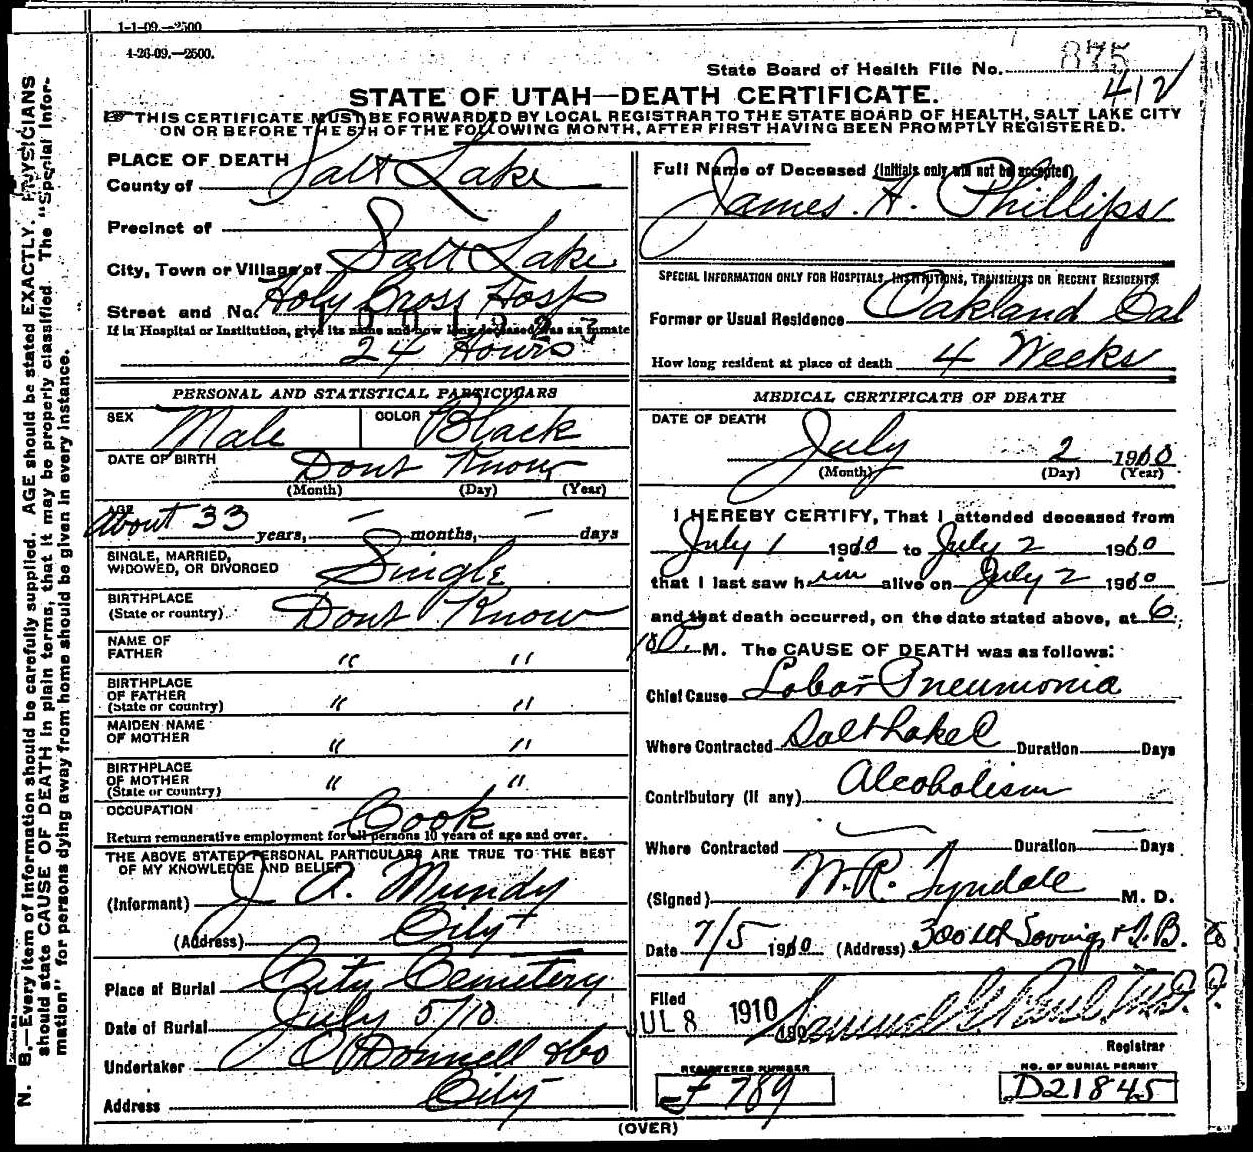 1-1-09.—2500
4-26-09.—2500.
State Board of Health File No. 875
412
STATE OF UTAH—DEATH CERTIFICATE.
THIS CERTIFICATE MUST BE FORWARDED BY LOCAL REGISTRAR TO THE STATE BOARD OF HEALTH, SALT LAKE CITY
ON OR BEFORE THE 5TH OF THE FOLLOWING MONTH, AFTER FIRST HAVING BEEN PROMPTLY REGISTERED.
N. B.—Every item of information should be carefully supplied. AGE should be stated EXACTLY. PHYSICIANS
should state CAUSE OF DEATH in plain terms, that it may be properly classified. The "Special Infor-
mation" for persons dying away from home should be given in every instance.
PLACE OF DEATH
County of Salt Lake
Precinct of
City, Town or Village of Salt Lake
Street and No. Holy Cross Hosp
If in Hospital or Institution, give its name and how long deceased was an inmate
24 Hours
PERSONAL AND STATISTICAL PARTICULARS
SEX Male COLOR Black
DATE OF BIRTH Dont Know
(Month) (Day) (Year)
AGE About 33 years, — months, — days
SINGLE, MARRIED,
WIDOWED, OR DIVORCED Single
BIRTHPLACE
(State or country) Dont Know
NAME OF
FATHER " "
BIRTHPLACE
OF FATHER
(State or country) " "
MAIDEN NAME
OF MOTHER " "
BIRTHPLACE
OF MOTHER
(State or country) " "
OCCUPATION Cook
Return remunerative employment for all persons 10 years of age and over.
THE ABOVE STATED PERSONAL PARTICULARS ARE TRUE TO THE BEST
OF MY KNOWLEDGE AND BELIEF
(Informant) J A. Mundy
(Address) City
Place of Burial City Cemetery
Date of Burial July 5/10
Undertaker O'Donnell & Co
Address City
Full Name of Deceased (Initials only will not be accepted)
James. H. Phillips
SPECIAL INFORMATION ONLY FOR HOSPITALS, INSTITUTIONS, TRANSIENTS OR RECENT RESIDENTS.
Former or Usual Residence Oakland Cal
How long resident at place of death 4 Weeks
MEDICAL CERTIFICATE OF DEATH
DATE OF DEATH
July 2 1910
(Month) (Day) (Year)
I HEREBY CERTIFY, That I attended deceased from
July 1 1910 to July 2 1910
that I last saw him alive on July 2 1910
and that death occurred, on the date stated above, at 6
M. The CAUSE OF DEATH was as follows:
Chief Cause Lobar Pneumonia
Where Contracted Salt Lake C Duration Days
Contributory (if any) Alcoholism
Where Contracted — Duration — Days
(Signed) W. R. Tyndale M. D.
Date 7/5 1910 (Address) Savings & T. B.
Filed JUL 8 1910 190
Samuel G. Paul M.D.
Registrar
REGISTERED NUMBER
F 789
NO. OF BURIAL PERMIT
D21845
(OVER)